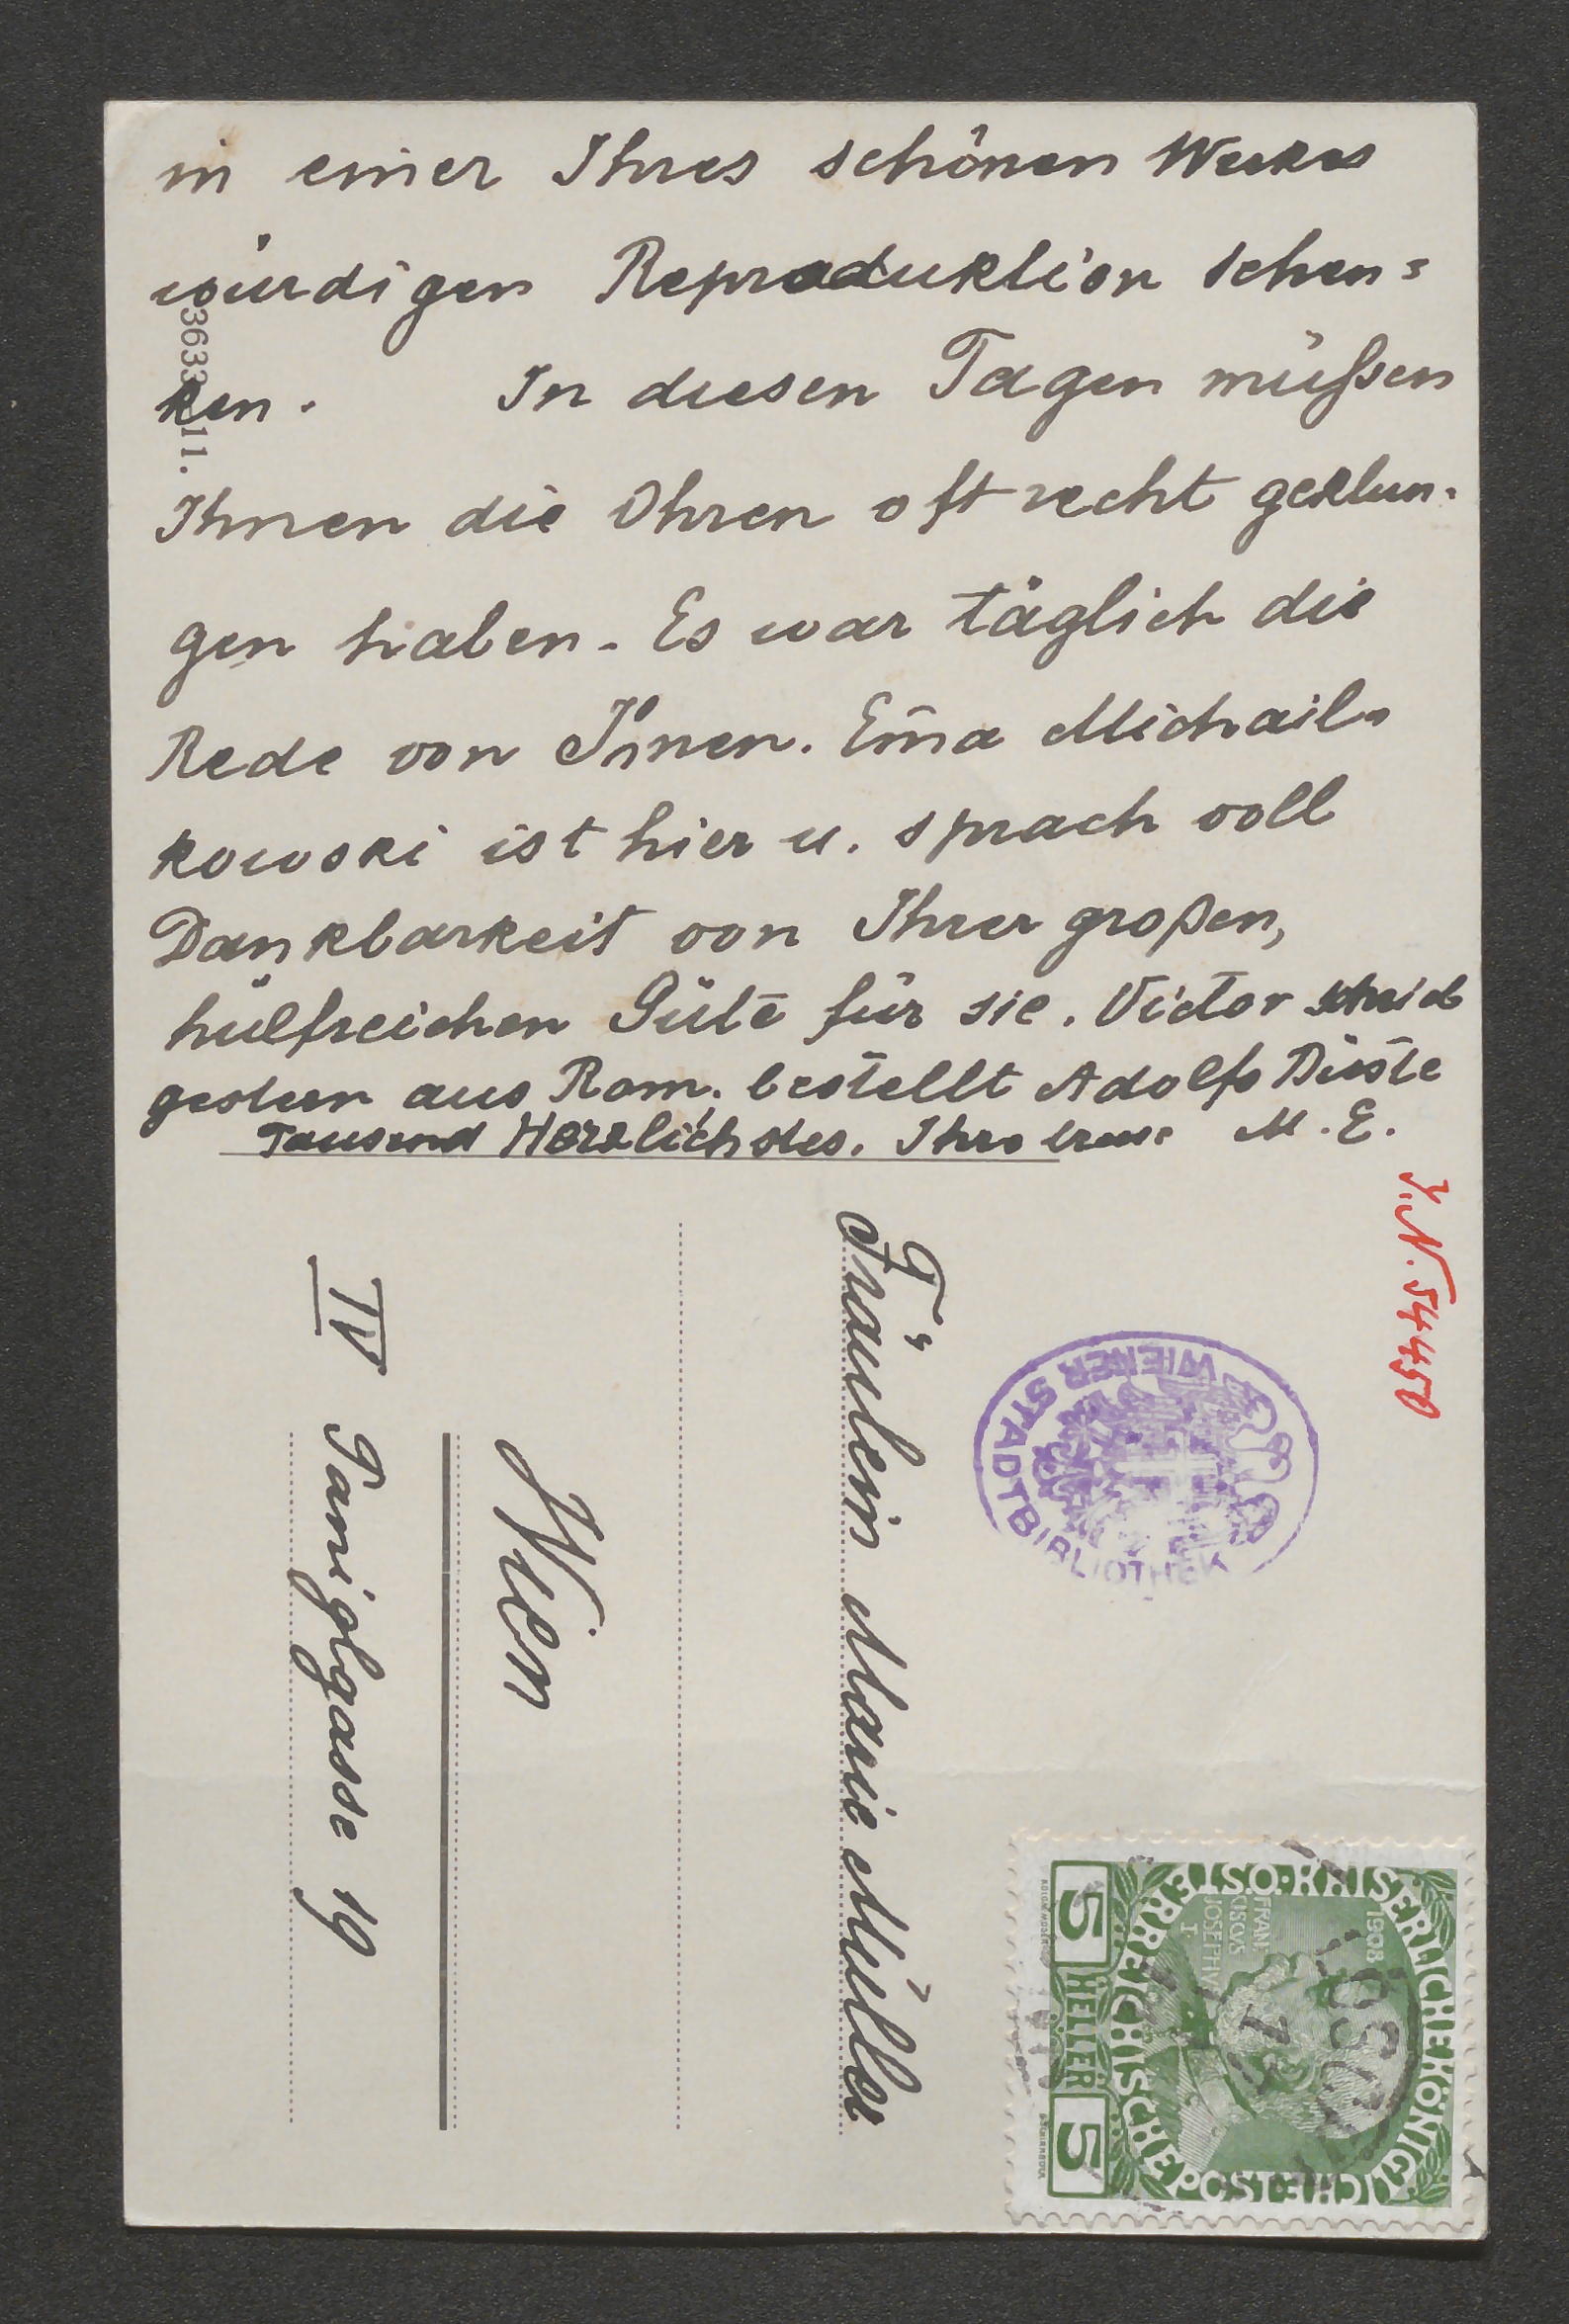 in einer Ihres schönen Werkes
würdigen Reproduktion schen=
ken. In diesen Tagen müßsen
Ihnen die Ohren oft recht geklun-
gen haben. Es war täglich die
Rede von Ihnen. Em̄a Michail-
kowski ist hier u. sprach voll
Dankbarkeit von Ihrer großen,
hülfreichen Güte für sie. Victor schrieb
gestern aus Rom, bestellt Adolfs Büste
Tausend Herzlichstes. Ihre treue M. E.
3633 11.
I.N. 54450
WIENER STADTBIBLIOTHEK
Fräulein Marie Müller
Wien
IV Paniglgasse 19
KAISERLICHE KÖNIGLICHE
ÖSTERREICHISCHE POST
1908
FRANCISCVS JOSEPHVS I.
5 HELLER 5